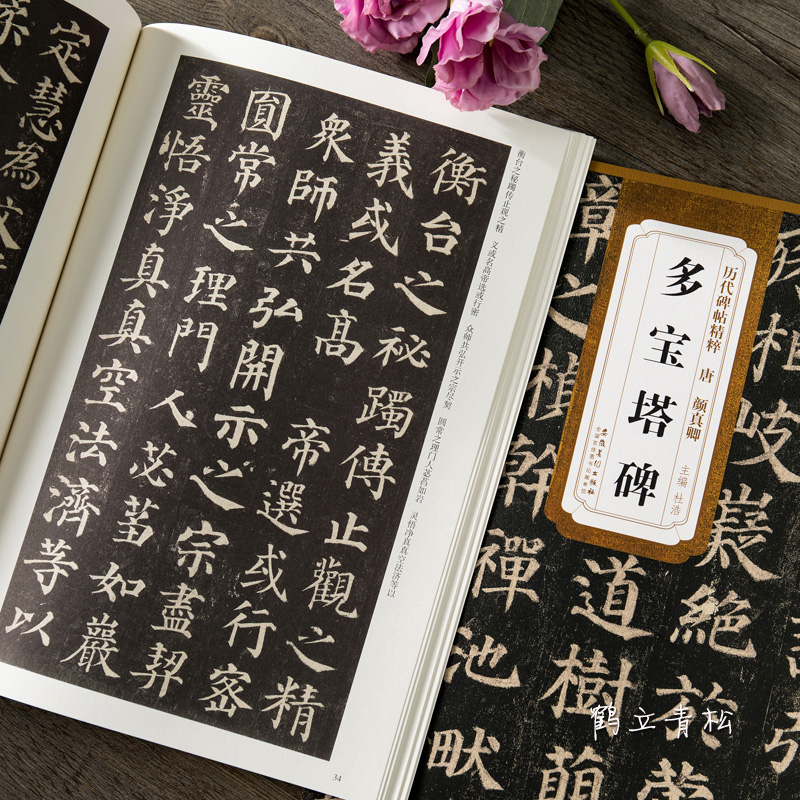 衡台之祕躅傳止觀之精
義或名高 帝選或行密
衆師共弘開示之宗盡契
圓常之理門人苾蒭如巖
靈悟淨真真空法濟等以
定慧為文
衡台之秘躅传止观之精 义或名高帝选或行密 众师共弘开示之宗尽契 圆常之理门人苾蒭如岩 灵悟净真真空法济等以
34
历代碑帖精粹 唐 颜真卿
多宝塔碑
主编 杜浩
安徽美术出版社
相岐嶷絶於
道樹萌
章之楨幹禪池畎
鹤立青松